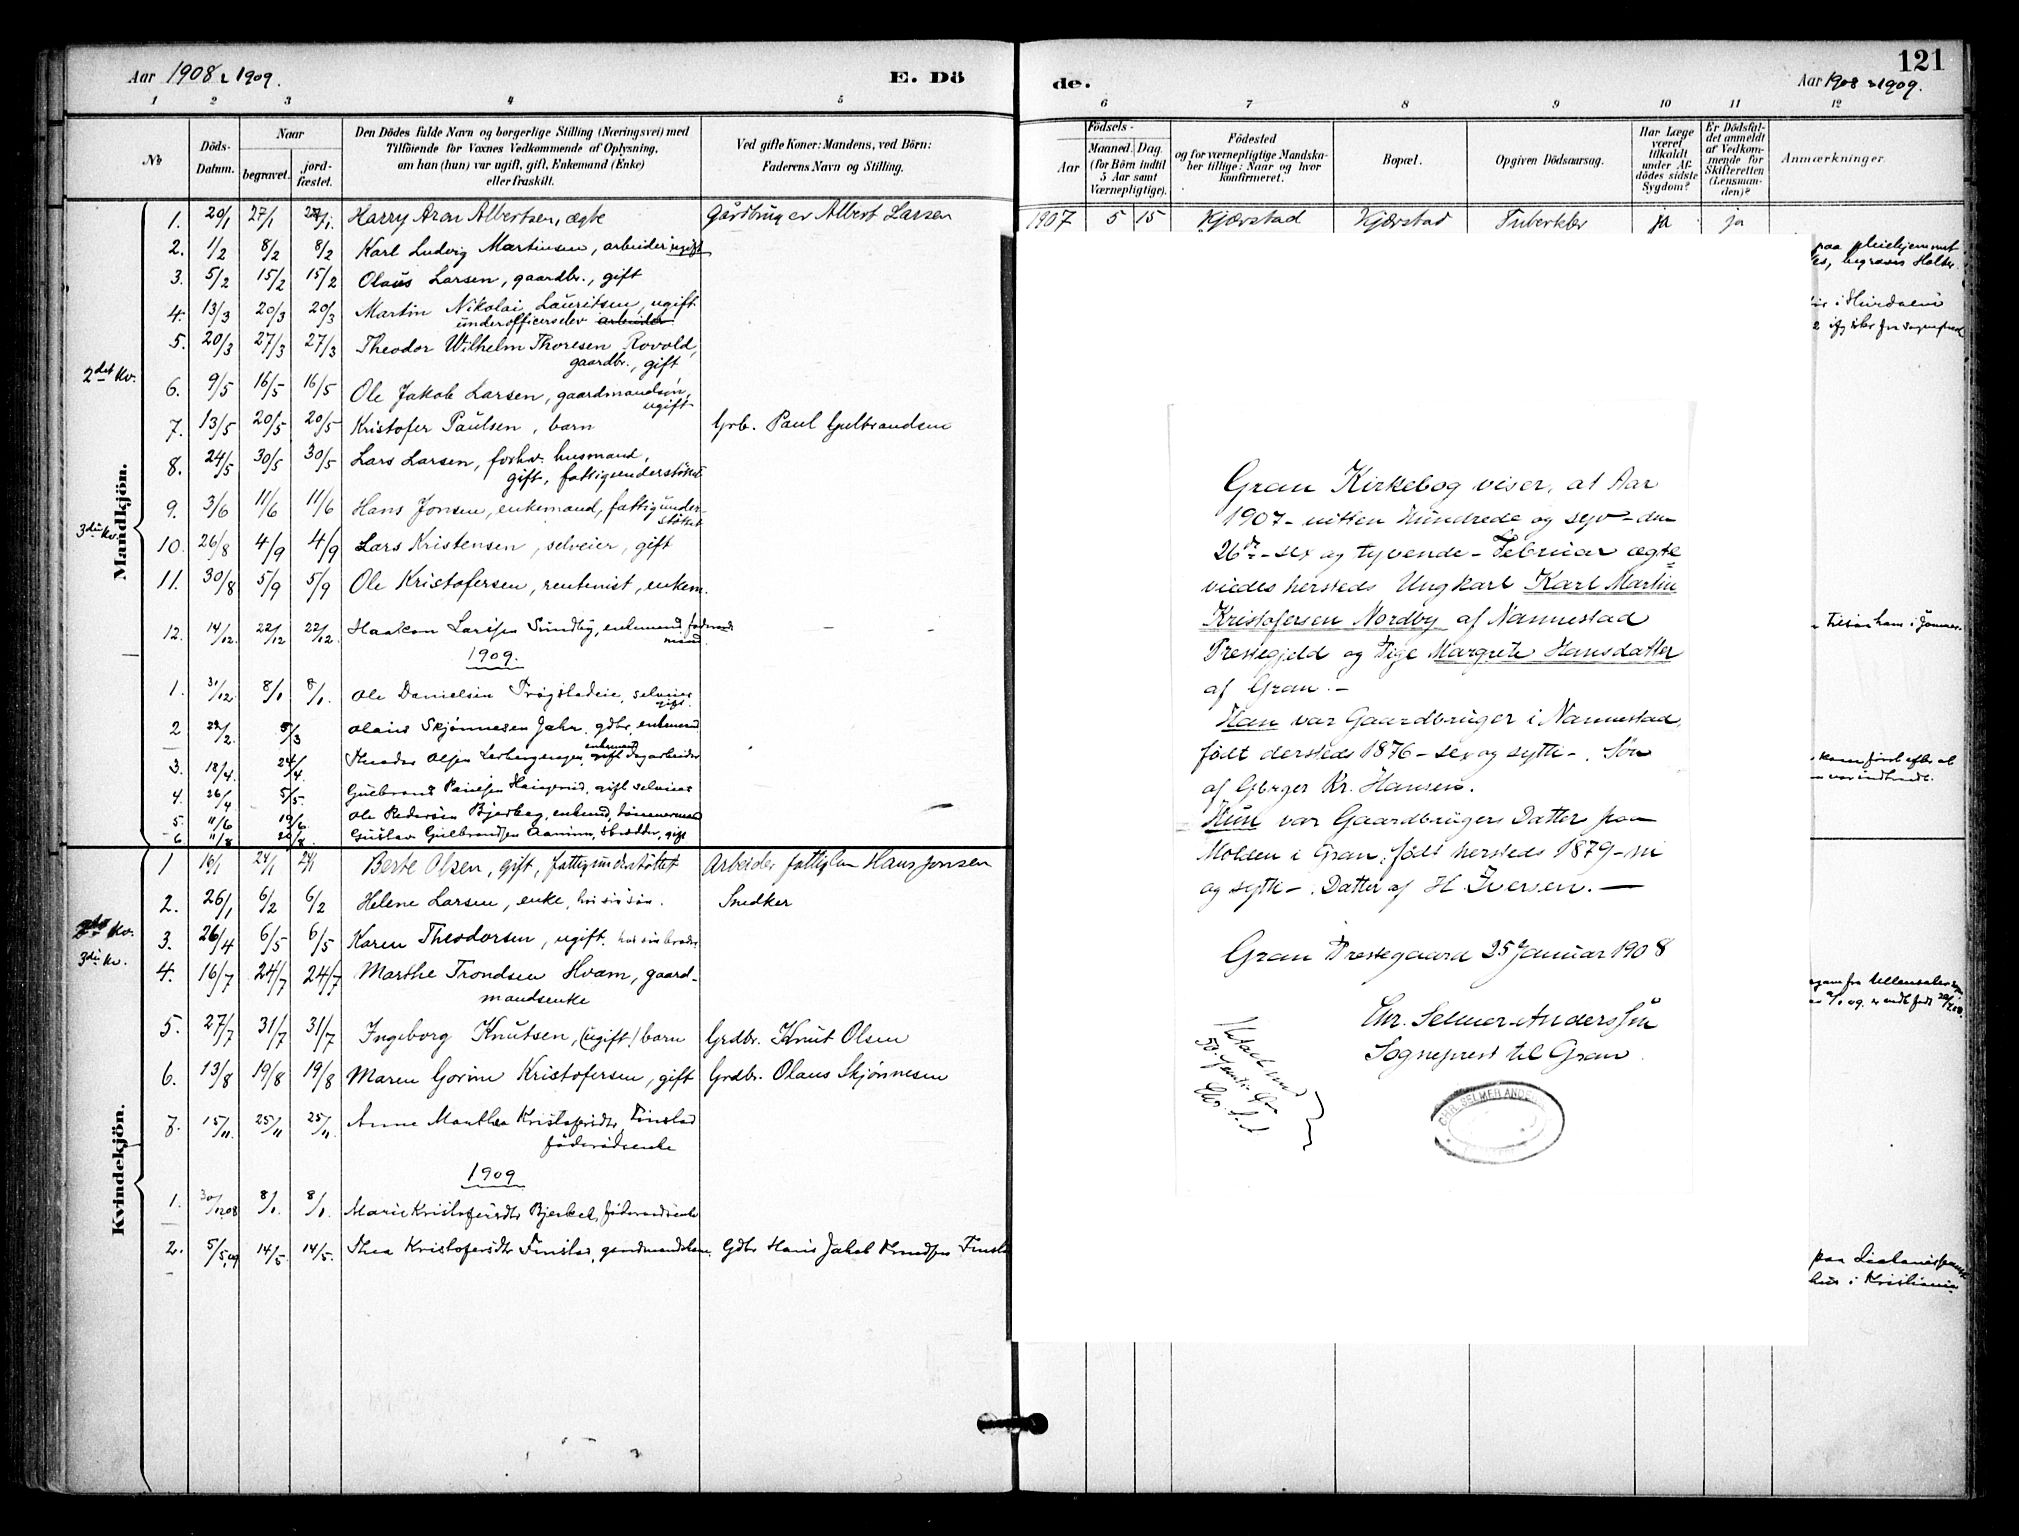 Aar 1908 & 1909.
E. Dö
1 2 3 4 5
No
Döds-
Datum.
Naar
begravet.
jord-
fæstet.
Den Dödes fulde Navn og borgerlige Stilling (Næringsvei) med
Tilföiende for Voxnes Vedkommende af Oplysning,
om han (hun) var ugift, gift, Enkemand (Enke)
eller fraskilt.
Ved gifte Koner: Mandens, ved Börn:
Faderens Navn og Stilling.
Mandkjön.
1. 20/1 27/1 27/1 Harry Aron Albertsen, ægte Gårdbruger Albert Larsen
2. 1/2 8/2 8/2 Karl Ludvig Martinsen, arbeider ugift
3. 5/2 15/2 15/2 Olaus Larsen, gaardbr., gift
4. 13/3 20/3 20/3 Martin Nikolai Lauritsen, ugift
underofficerselev arbeider
5. 20/3 27/3 27/3 Theodor Wilhelm Thoresen Rovold,
gaardbr., gift
2det Kv.
6. 9/5 16/5 16/5 Ole Jakob Larsen, gaardmandsön,
ugift
7. 13/5 20/5 20/5 Kristofer Paulsen, barn Grb. Paul Gulbrandsen
8. 24/5 30/5 30/5 Lars Larsen, forhv. husmand,
gift, fattigunderstöttet
9. 3/6 11/6 11/6 Hans Jonsen, enkemand, fattigunder-
stöttet
3die Kv.
10. 26/8 4/9 4/9 Lars Kristensen, selveier, gift
11. 30/8 5/9 5/9 Ole Kristofersen, rentenist, enkem.
12. 14/12. 22/12 22/12 Haakon Larssen Sundby, enkemand föderaads
mand
1909.
1. 31/12. 8/1 8/1. Ole Danielsen Trögstadeie, selveier
gift.
2 22/2. 5/3 Olaus Skjönnesen Jahr, gdbr. enkemand
3. 18/4. 24/4. Theodor Olsen enkemand gift Dagarbeider
4. 26/4 5/5. Gulbrand Paulsen gift selveier
5. 11/6 19/6. Ole Pedersen Bjerkeg, enkemd, tömmermand
6 11/8 20/8. Gustav Gulbrandsen gift
Kvindekjön.
1 16/1 24/1 24/1 Berte Olsen, gift, fattigunderstöttet Arbeider fattiglem Hans Jonsen
2. 26/1 6/2 6/2 Helene Larsen, enke, hos sin sön. Snedker
2det Kv.
3. 26/4 6/5 6/5 Karen Theodorsen, ugift, hos sin broder
3die Kv.
4. 16/7 24/7 24/7 Marthe Trondsen Hvam, gaard-
mandsenke
5. 27/7 31/7 31/7 Ingeborg Knutsen, (ugift) barn Grdbr. Knut Olsen
6. 13/8 19/8 19/8 Maren Gorine Kristofersen, gift Grdbr. Olaus Skjönnesen
7. 15/11. 25/11 25/11 Anne Marthea Kristofersdtr. Finstad
föderådsenke
1909
1. 30/12 08 8/1. 8/1. Marie Kristofersdtr Bjerkel, föderaadsenke
2. 5/5 09 14/5. 14/5. Thea Kristofersdtr Finstad, gaardmandskone. Gdbr Hans Jakob Knudsen Finstad
de.
121
Aar 1908 & 1909.
6 7 8 9 10 11 12
Födsels-
Aar
Maaned. Dag.
(for Börn indtil
5 Aar samt
Værnepligtige).
Födested
og for værnepligtige Mandska-
ber tillige: Naar og hvor
konfirmeret.
Bopæl.
Opgiven Dödsaarsag.
Har Læge
været
tilkaldt
under Af-
dödes sidste
Sygdom?
Er Dödsfal-
det anmeldt
af Vedkom-
mende for
Skifteretten
(Lensman-
den)?
Anmærkninger.
1907 5 15 Kjærstad Kjærstad Tuberkler ja ja
paa pleiehjemmet
begraves Holter.
i Hurdalen
Gran Kirkebog viser, at Aar
1907 - nitten hundrede og syv - den
26de - sex og tyvende - Februar ægte-
viedes hersteds Ungkarl Karl Martin
Kristofersen Nordby af Nannestad
Prestegjeld og Pige Margrete Hansdatter
af Gran. -
Han var Gaardbruger i Nannestad,
født dersteds 1876 - sex og sytti -. Søn
af Gbrger Kr. Hansen.
Hun var Gaardbrugers Datter paa
Molden i Gran, født hersteds 1879 - ni
og sytti -. Datter af H. Iversen. -
Gran Prestegaard 25 Januar 1908
Chr. Selmer-Anderssen
Sogneprest til Gran.
CHR. SELMER ANDE
kom först efter at
var indbundet.
fra Ullensaker
paa Diakonisse
hus i Kristiania